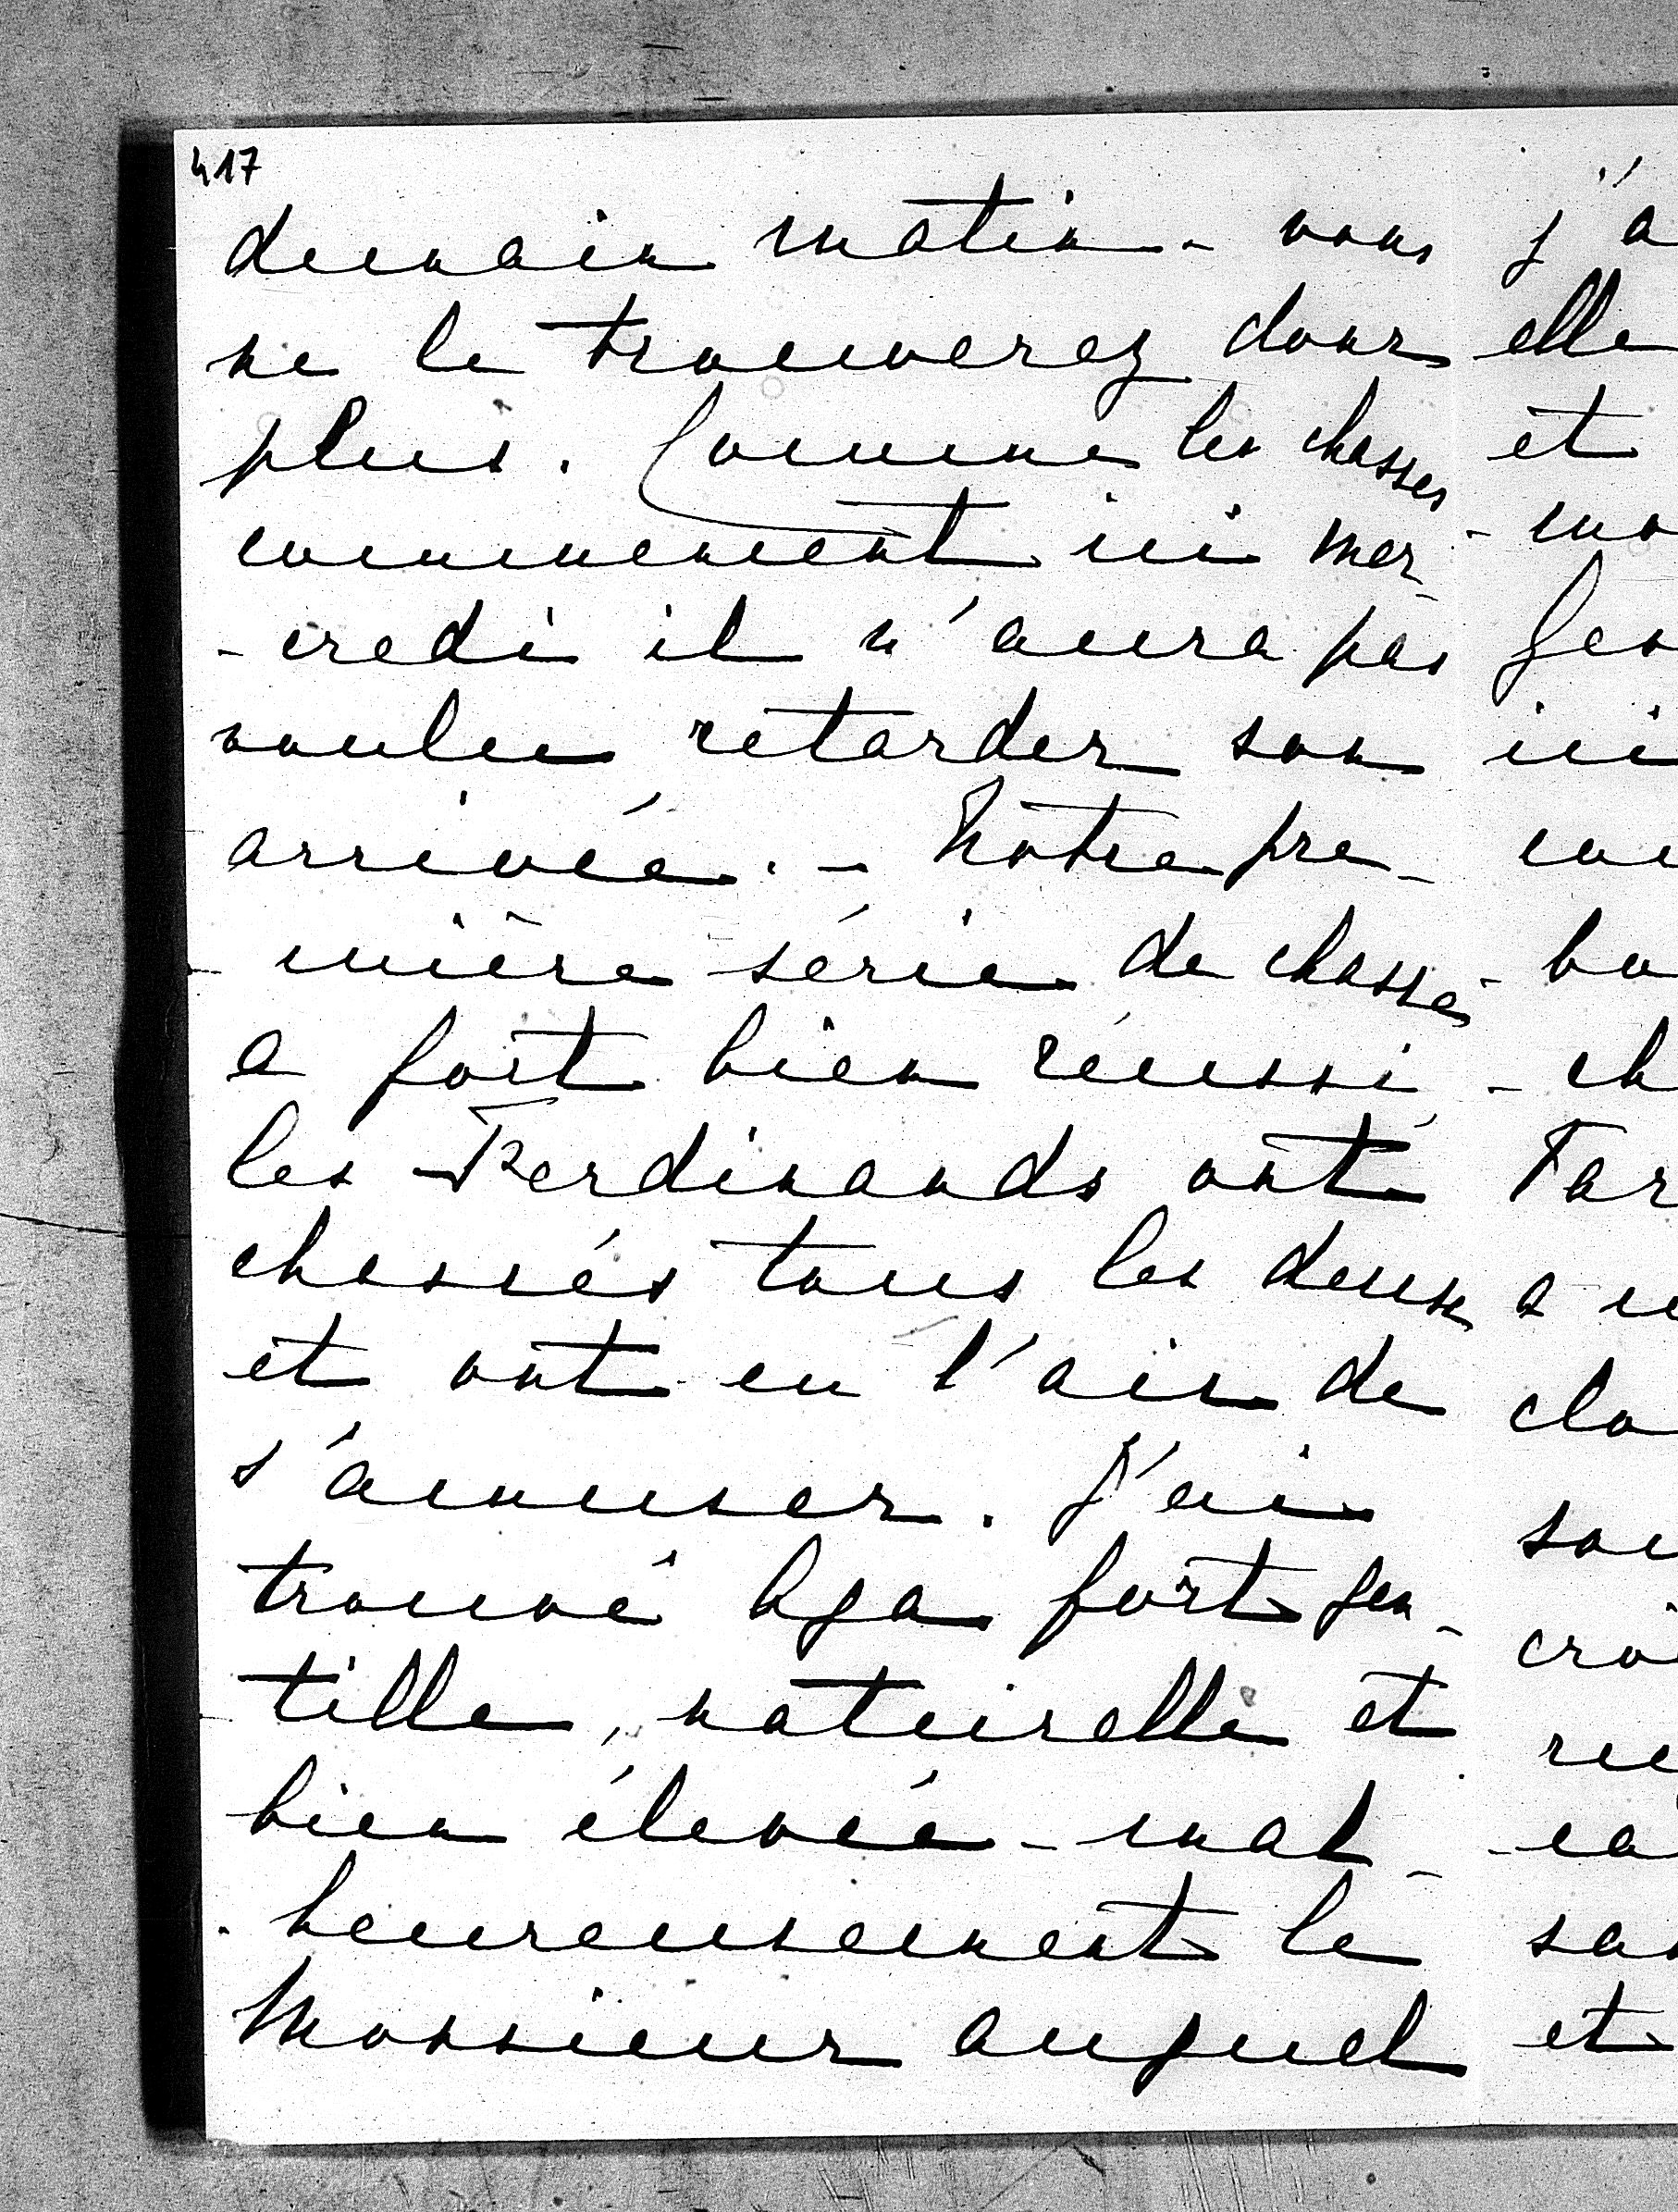 417
demain matin - vous
ne le trouverez donc
plus. Comme les chasses
commencent ici mer-
-credi il n'aura pas
voulu retarder son
arrivée. - Notre pre-
-mière série de chasse
a fort bien réussi -
les Ferdinands ont
chassés tous les deux
et ont eu l'air de
s'amuser. J'ai
trouvé fort gen-
tille, naturelle et
bien élevée - mal-
-heureusement le
Monsieur auquel
j'a
elle
et
- mo
Ger
ici
co
- bo
- ch
Tar
a
cla
sou
croi
re
- ca
sa
et